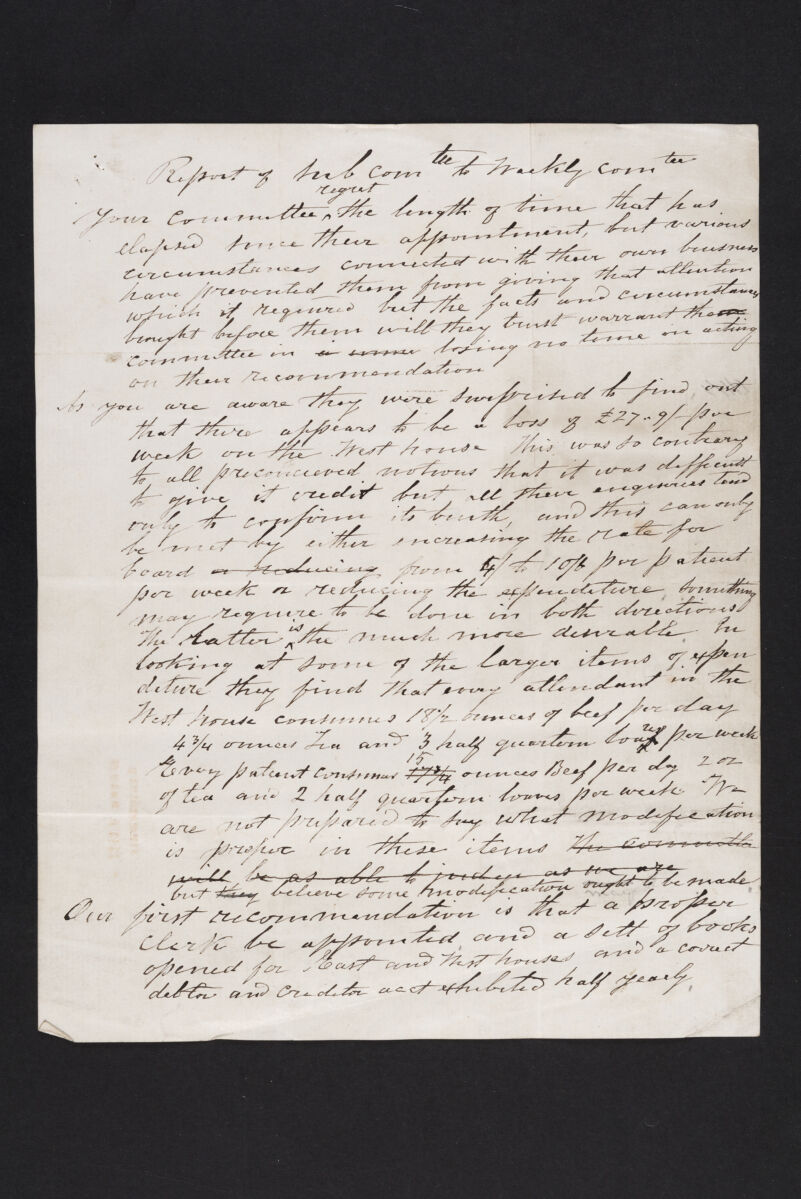 Report of sub com tee to Weekly com tee
regret
Your committee ^ the length of time that has
elapsed since their appointment, but various
circumstances connected with their own business
have prevented them from giving that attention
which it required but the facts and circumstances
brought before them will they trust warrant the
committee in losing no time in acting
on their recommendation
As you are aware they were surprised to find out
that there appears to be a loss of £27-9/- per
week on the West house This was so contrary
to all preconceived notions that it was difficult
to give it credit but all their enquiries tend
only to confirm its truth, and this can only
be met by either increasing the rate for
board or reducing from to 10/6 per patient
per week or reducing the expenditure, something
may require to be done in both directions
The latter is ^ the much more desirable. In
looking at some of the larger items of expen
diture they find that every attendant in the
West house consumes 18½ ounces of beef per day
4¾ ounces Tea and 3 half quartern loaves per week
15
Every patient consumes 17¾ ounces Beef per day 2 oz
of tea and 2 half quartern loaves per week We
are not prepared to say what modification
is proper in these items The committee
will be as able to judge as we are
but they believe some modification ought to be made
Our first recommendation is that a proper
clerk be appointed and a sett of books
opened for East and West houses and a correct
debtor and creditor acct exhibited half yearly.